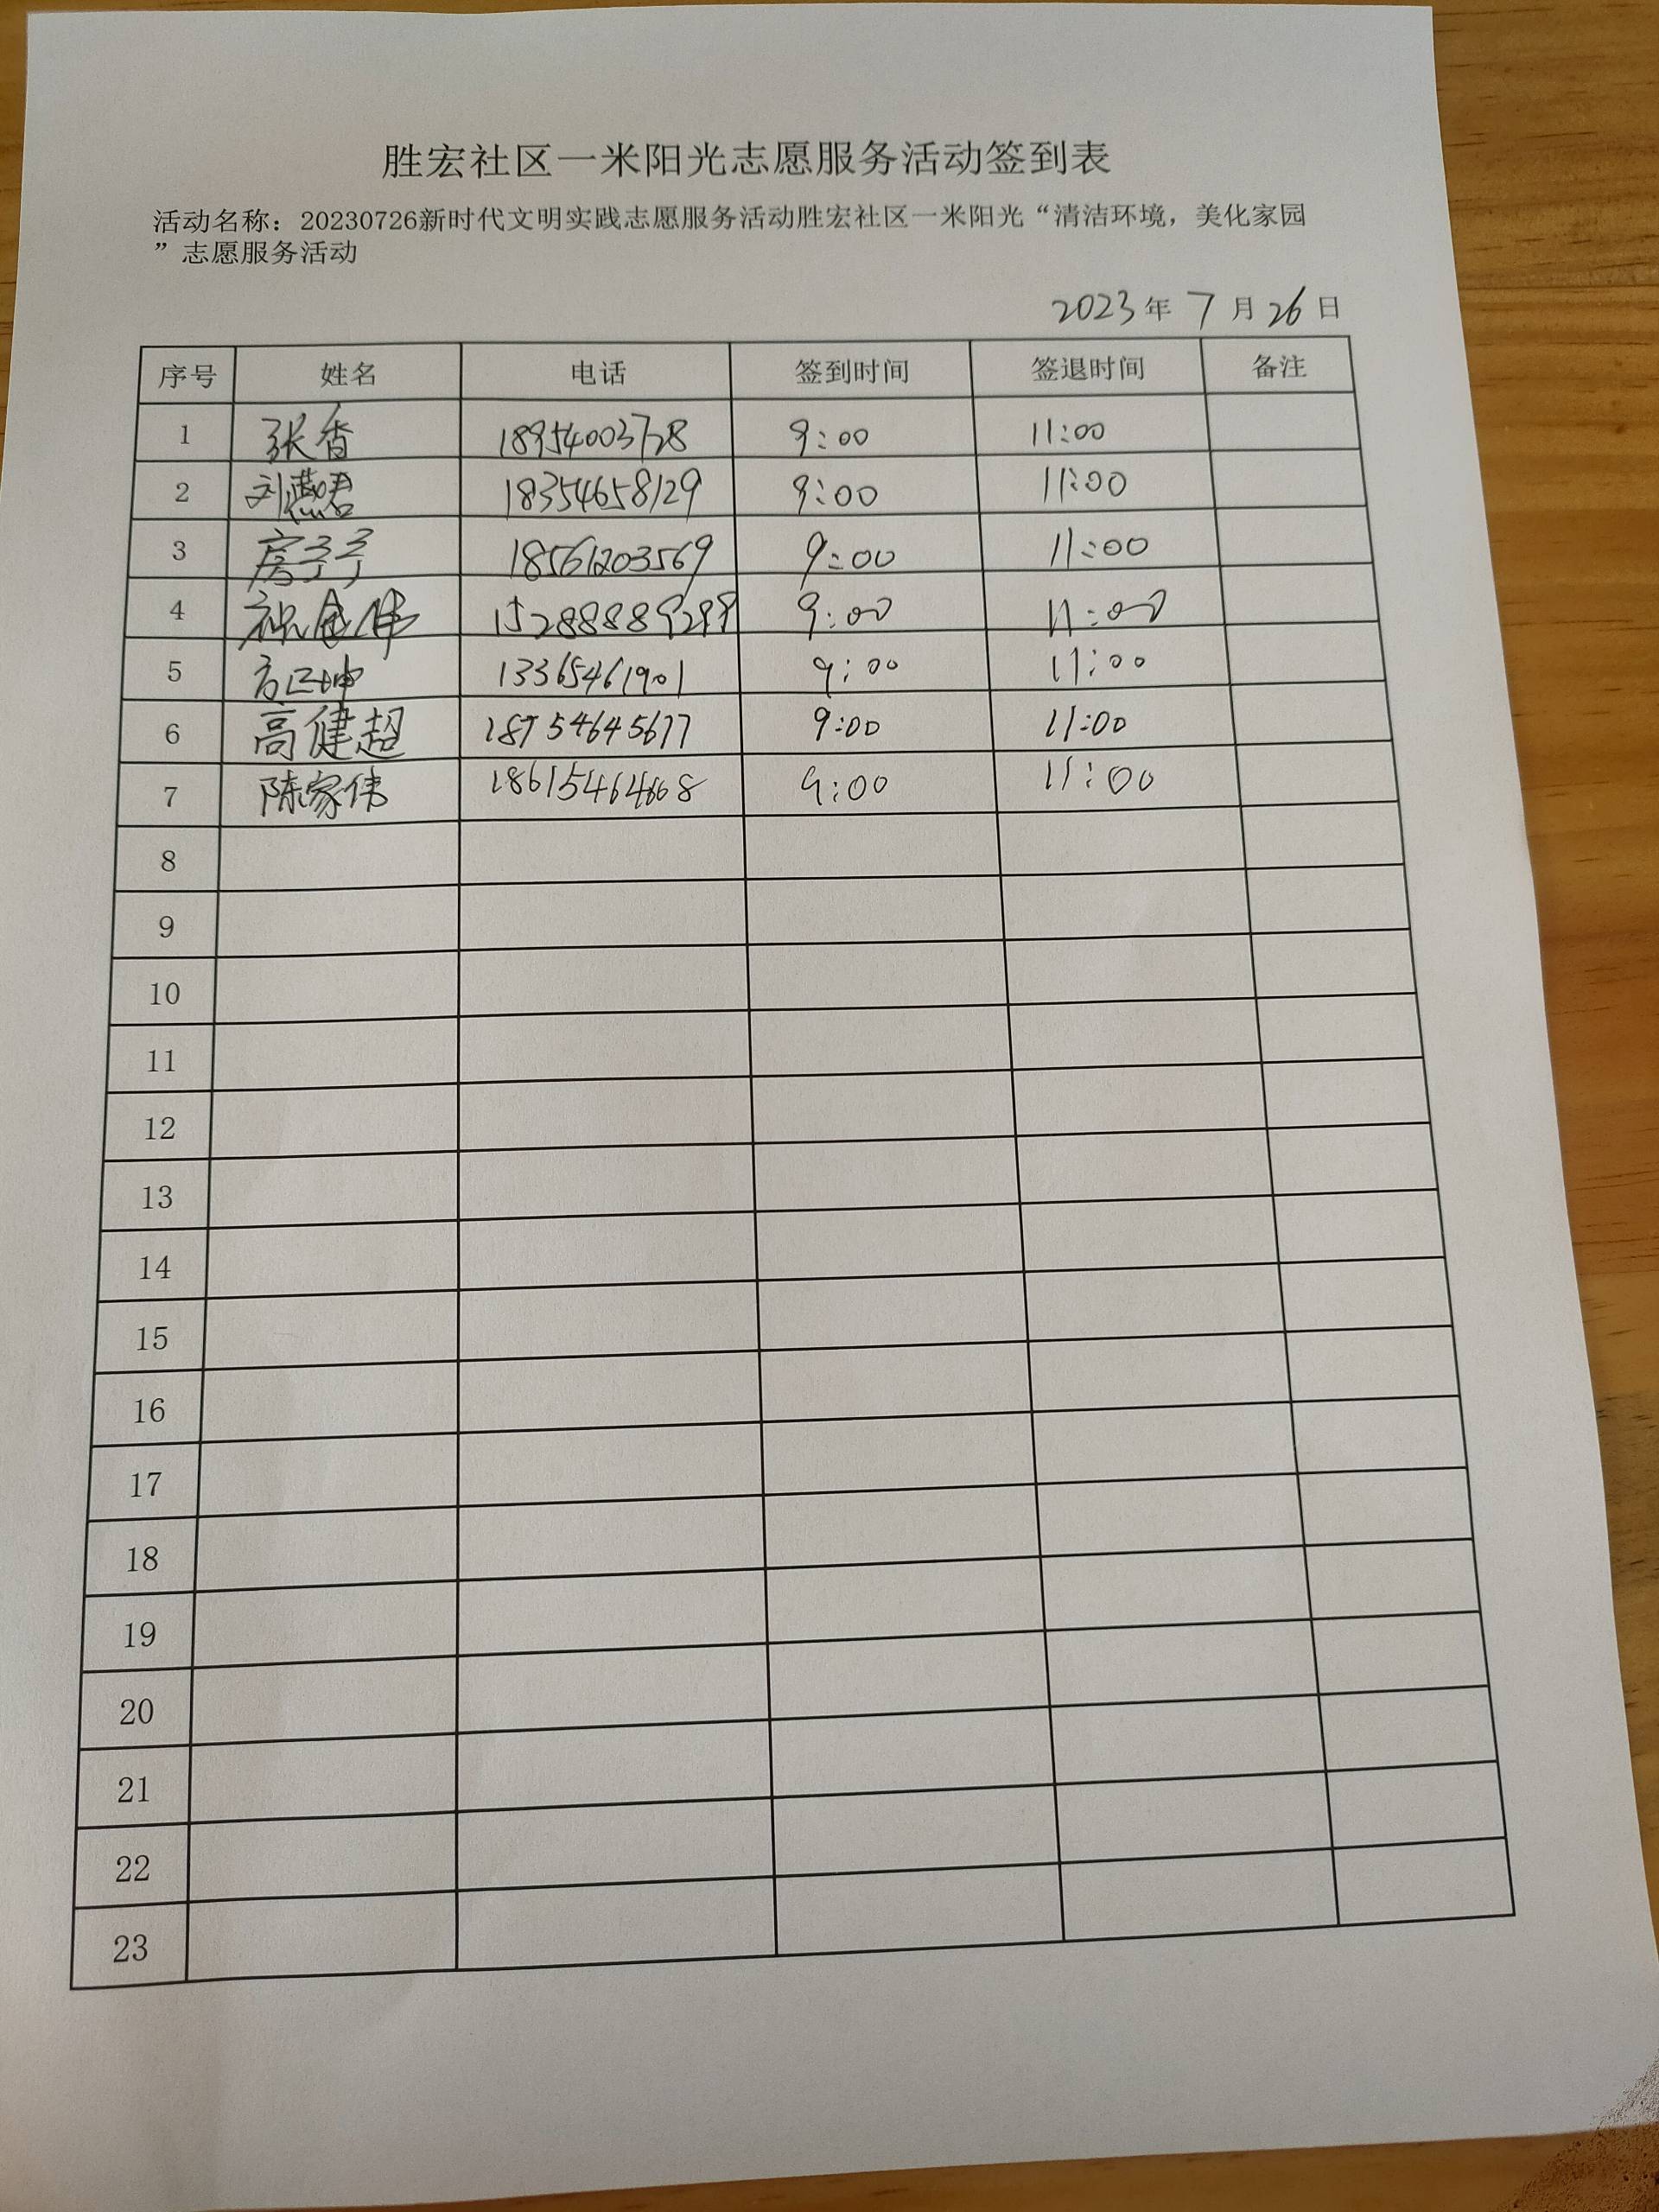 胜宏社区一米阳光志愿服务活动签到表
活动名称：20230726新时代文明实践志愿服务活动胜宏社区一米阳光“清洁环境，美化家园
”志愿服务活动
2023年 7月26日
序号 姓名 电话 签到时间 签退时间 备注
1 张香 18954003728 9:00 11:00
2 刘燕君 18354658129 9:00 11:00
3 房孑孑 18561203569 9:00 11:00
4 祝金伟 15288889299 9:00 11:00
5 13365461901 9:00 11:00
6 高健超 18754645677 9:00 11:00
7 陈家伟 18615464668 9:00 11:00
8
9
10
11
12
13
14
15
16
17
18
19
20
21
22
23